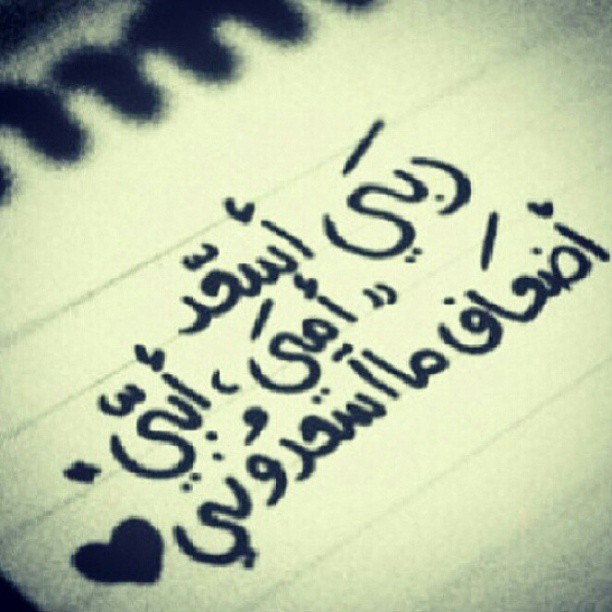 ربيَ أسعّد
" أميَ ، أبيّ .
أضعاف ما أسعدوُني